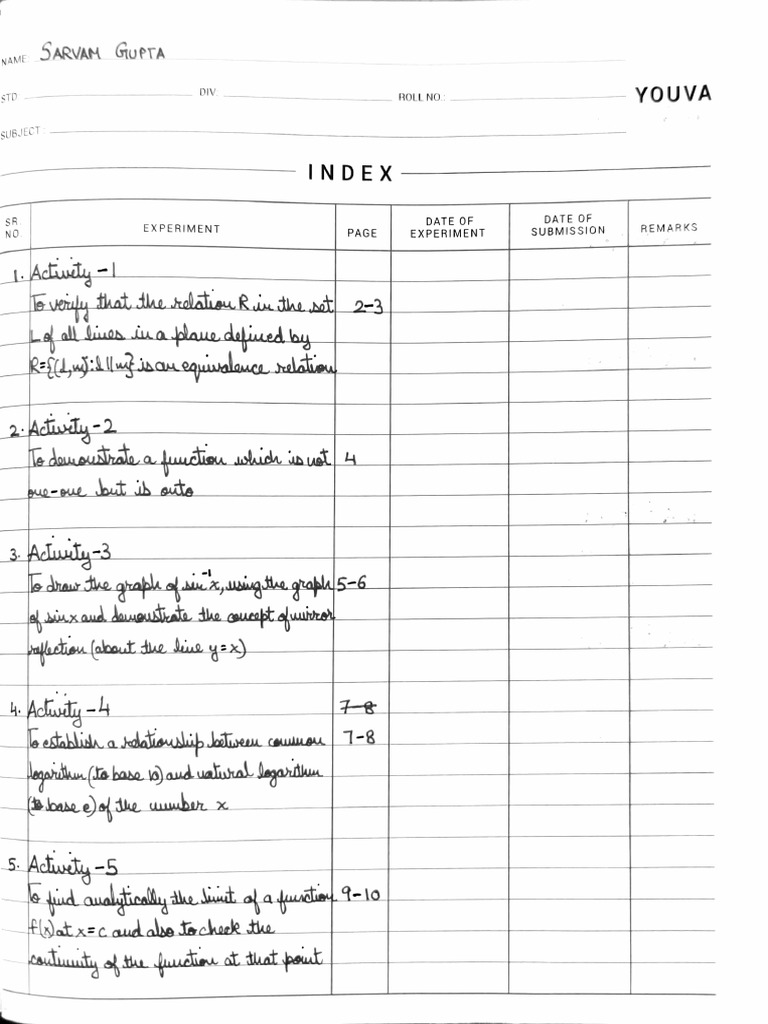 NAME: SARVAM GUPTA
STD. DIV. ROLL NO.: YOUVA
SUBJECT:
INDEX
SR. NO. EXPERIMENT PAGE DATE OF EXPERIMENT DATE OF SUBMISSION REMARKS
1. Activity-1
To verify that the relation R in the set 2-3
L of all lines in a plane defined by
R={(l,m):l||m} is an equivalence relation
2. Activity-2
To demonstrate a function which is not 4
one-one but is onto
3. Activity-3
To draw the graph of sin⁻¹x, using the graph 5-6
of sinx and demonstrate the concept of mirror
reflection (about the line y=x)
4. Activity-4 7-8
To establish a relationship between common 7-8
logarithm (to base 10) and natural logarithm
(to base e) of the number x
5. Activity-5
To find analytically the limit of a function 9-10
f(x) at x=c and also to check the
continuity of the function at that point